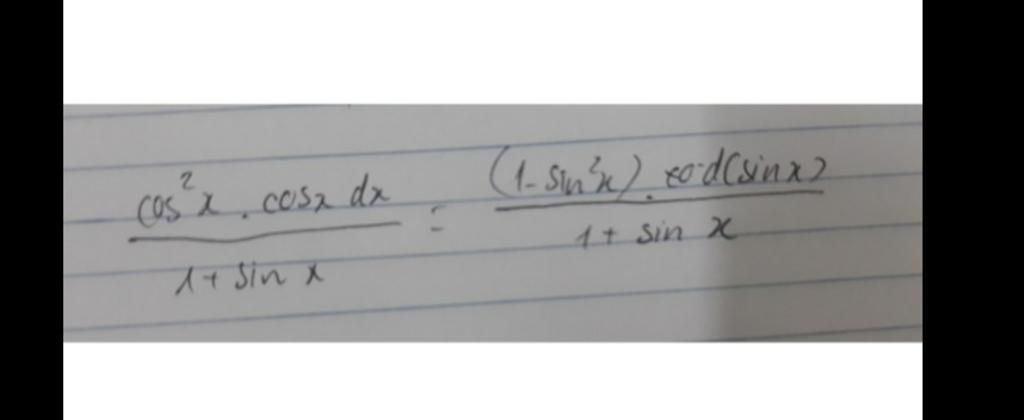 cos²x . cosx dx / 1+ sin x = (1- sin²x) . d(sinx) / 1+ sin x